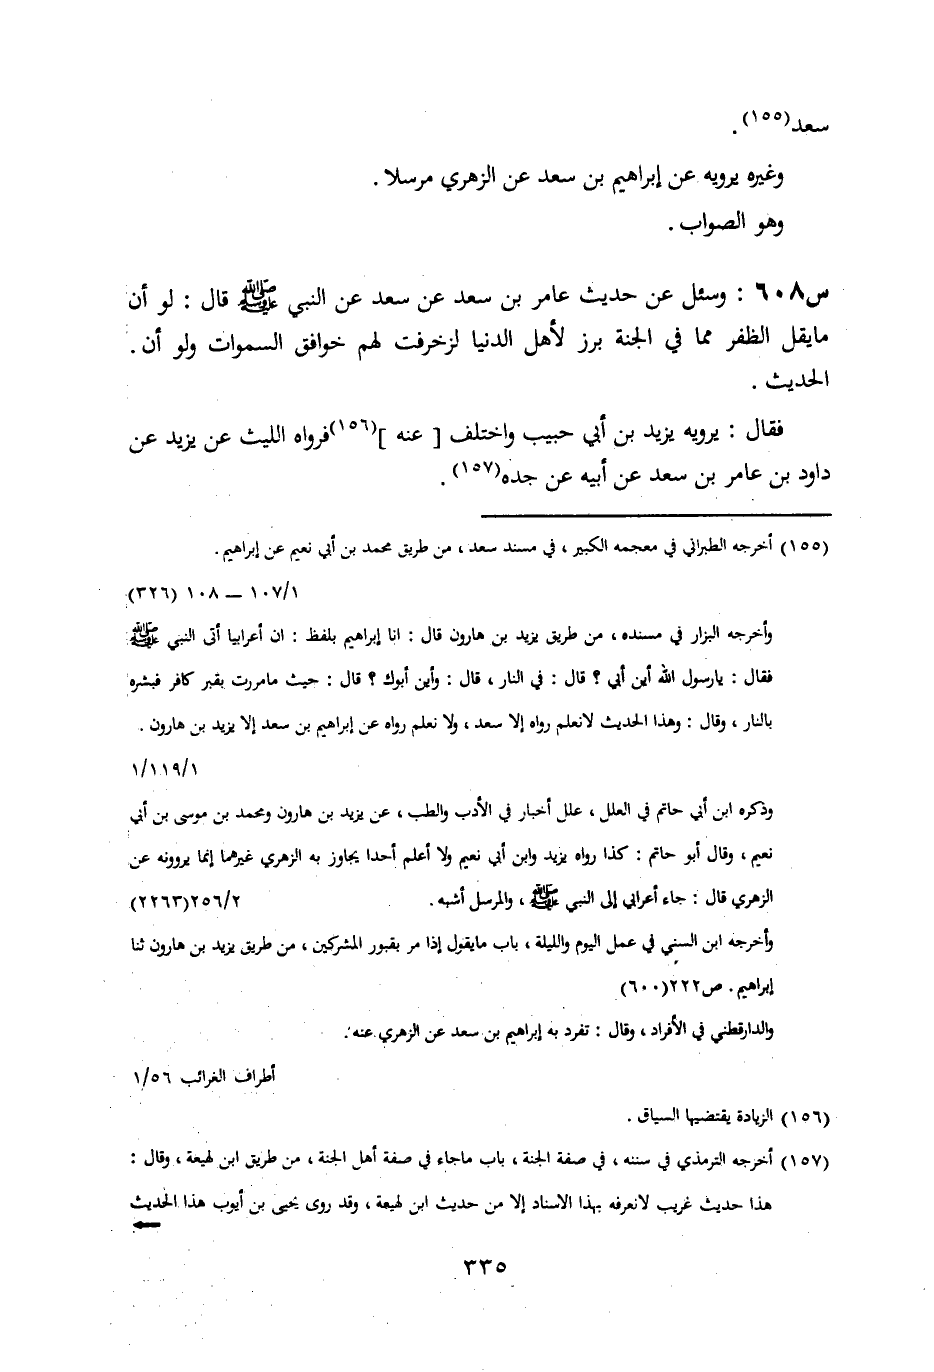 سعد(١٥٥) .
وغيره يرويه عن إبراهيم بن سعد عن الزهري مرسلا .
وهو الصواب .
س٦٠٨ : وسئل عن حديث عامر بن سعد عن سعد عن النبي ﷺ قال : لو أن
مايقل الظفر مما في الجنة برز لأهل الدنيا لزخرفت لهم خوافق السموات ولو أن .
الحديث .
فقال : يرويه يزيد بن أبي حبيب واختلف [ عنه ](١٥٦)فرواه الليث عن يزيد عن
داود بن عامر بن سعد عن أبيه عن جده(١٥٧) .
(١٥٥) أخرجه الطبراني في معجمه الكبير ، في مسند سعد ، من طريق محمد بن أبي نعيم عن إبراهيم .
١٠٧/١ – ١٠٨ (٣٢٦)
وأخرجه البزار في مسنده ، من طريق يزيد بن هارون قال : انا إبراهيم بلفظ : ان أعرابيا أتى النبي ﷺ
فقال : يارسول الله أين أبي ؟ قال : في النار ، قال : وأين أبوك ؟ قال : حيث مامررت بقبر كافر فبشره
بالنار ، وقال : وهذا الحديث لانعلم رواه إلا سعد ، ولا نعلم رواه عن إبراهيم بن سعد إلا يزيد بن هارون .
١/١١٩/١
وذكره ابن أبي حاتم في العلل ، علل أخبار في الأدب والطب ، عن يزيد بن هارون ومحمد بن موسى بن أبي
نعيم ، وقال أبو حاتم : كذا رواه يزيد وابن أبي نعيم ولا أعلم أحدا يجاوز به الزهري غيرهما إنما يروونه عن
الزهري قال : جاء أعرابي إلى النبي ﷺ ، والمرسل أشبه . ٢٥٦/٢(٢٢٦٣)
وأخرجه ابن السني في عمل اليوم والليلة ، باب مايقول إذا مر بقبور المشركين ، من طريق يزيد بن هارون ثنا
إبراهيم . ص٢٢٢(٦٠٠)
والدارقطني في الأفراد ، وقال : تفرد به إبراهيم بن سعد عن الزهري عنه .
أطراف الغرائب ١/٥٦
(١٥٦) الزيادة يقتضيها السياق .
(١٥٧) أخرجه الترمذي في سننه ، في صفة الجنة ، باب ماجاء في صفة أهل الجنة ، من طريق ابن لهيعة ، وقال :
هذا حديث غريب لانعرفه بهذا الاسناد إلا من حديث ابن لهيعة ، وقد روى يحيى بن أيوب هذا الحديث
٣٣٥